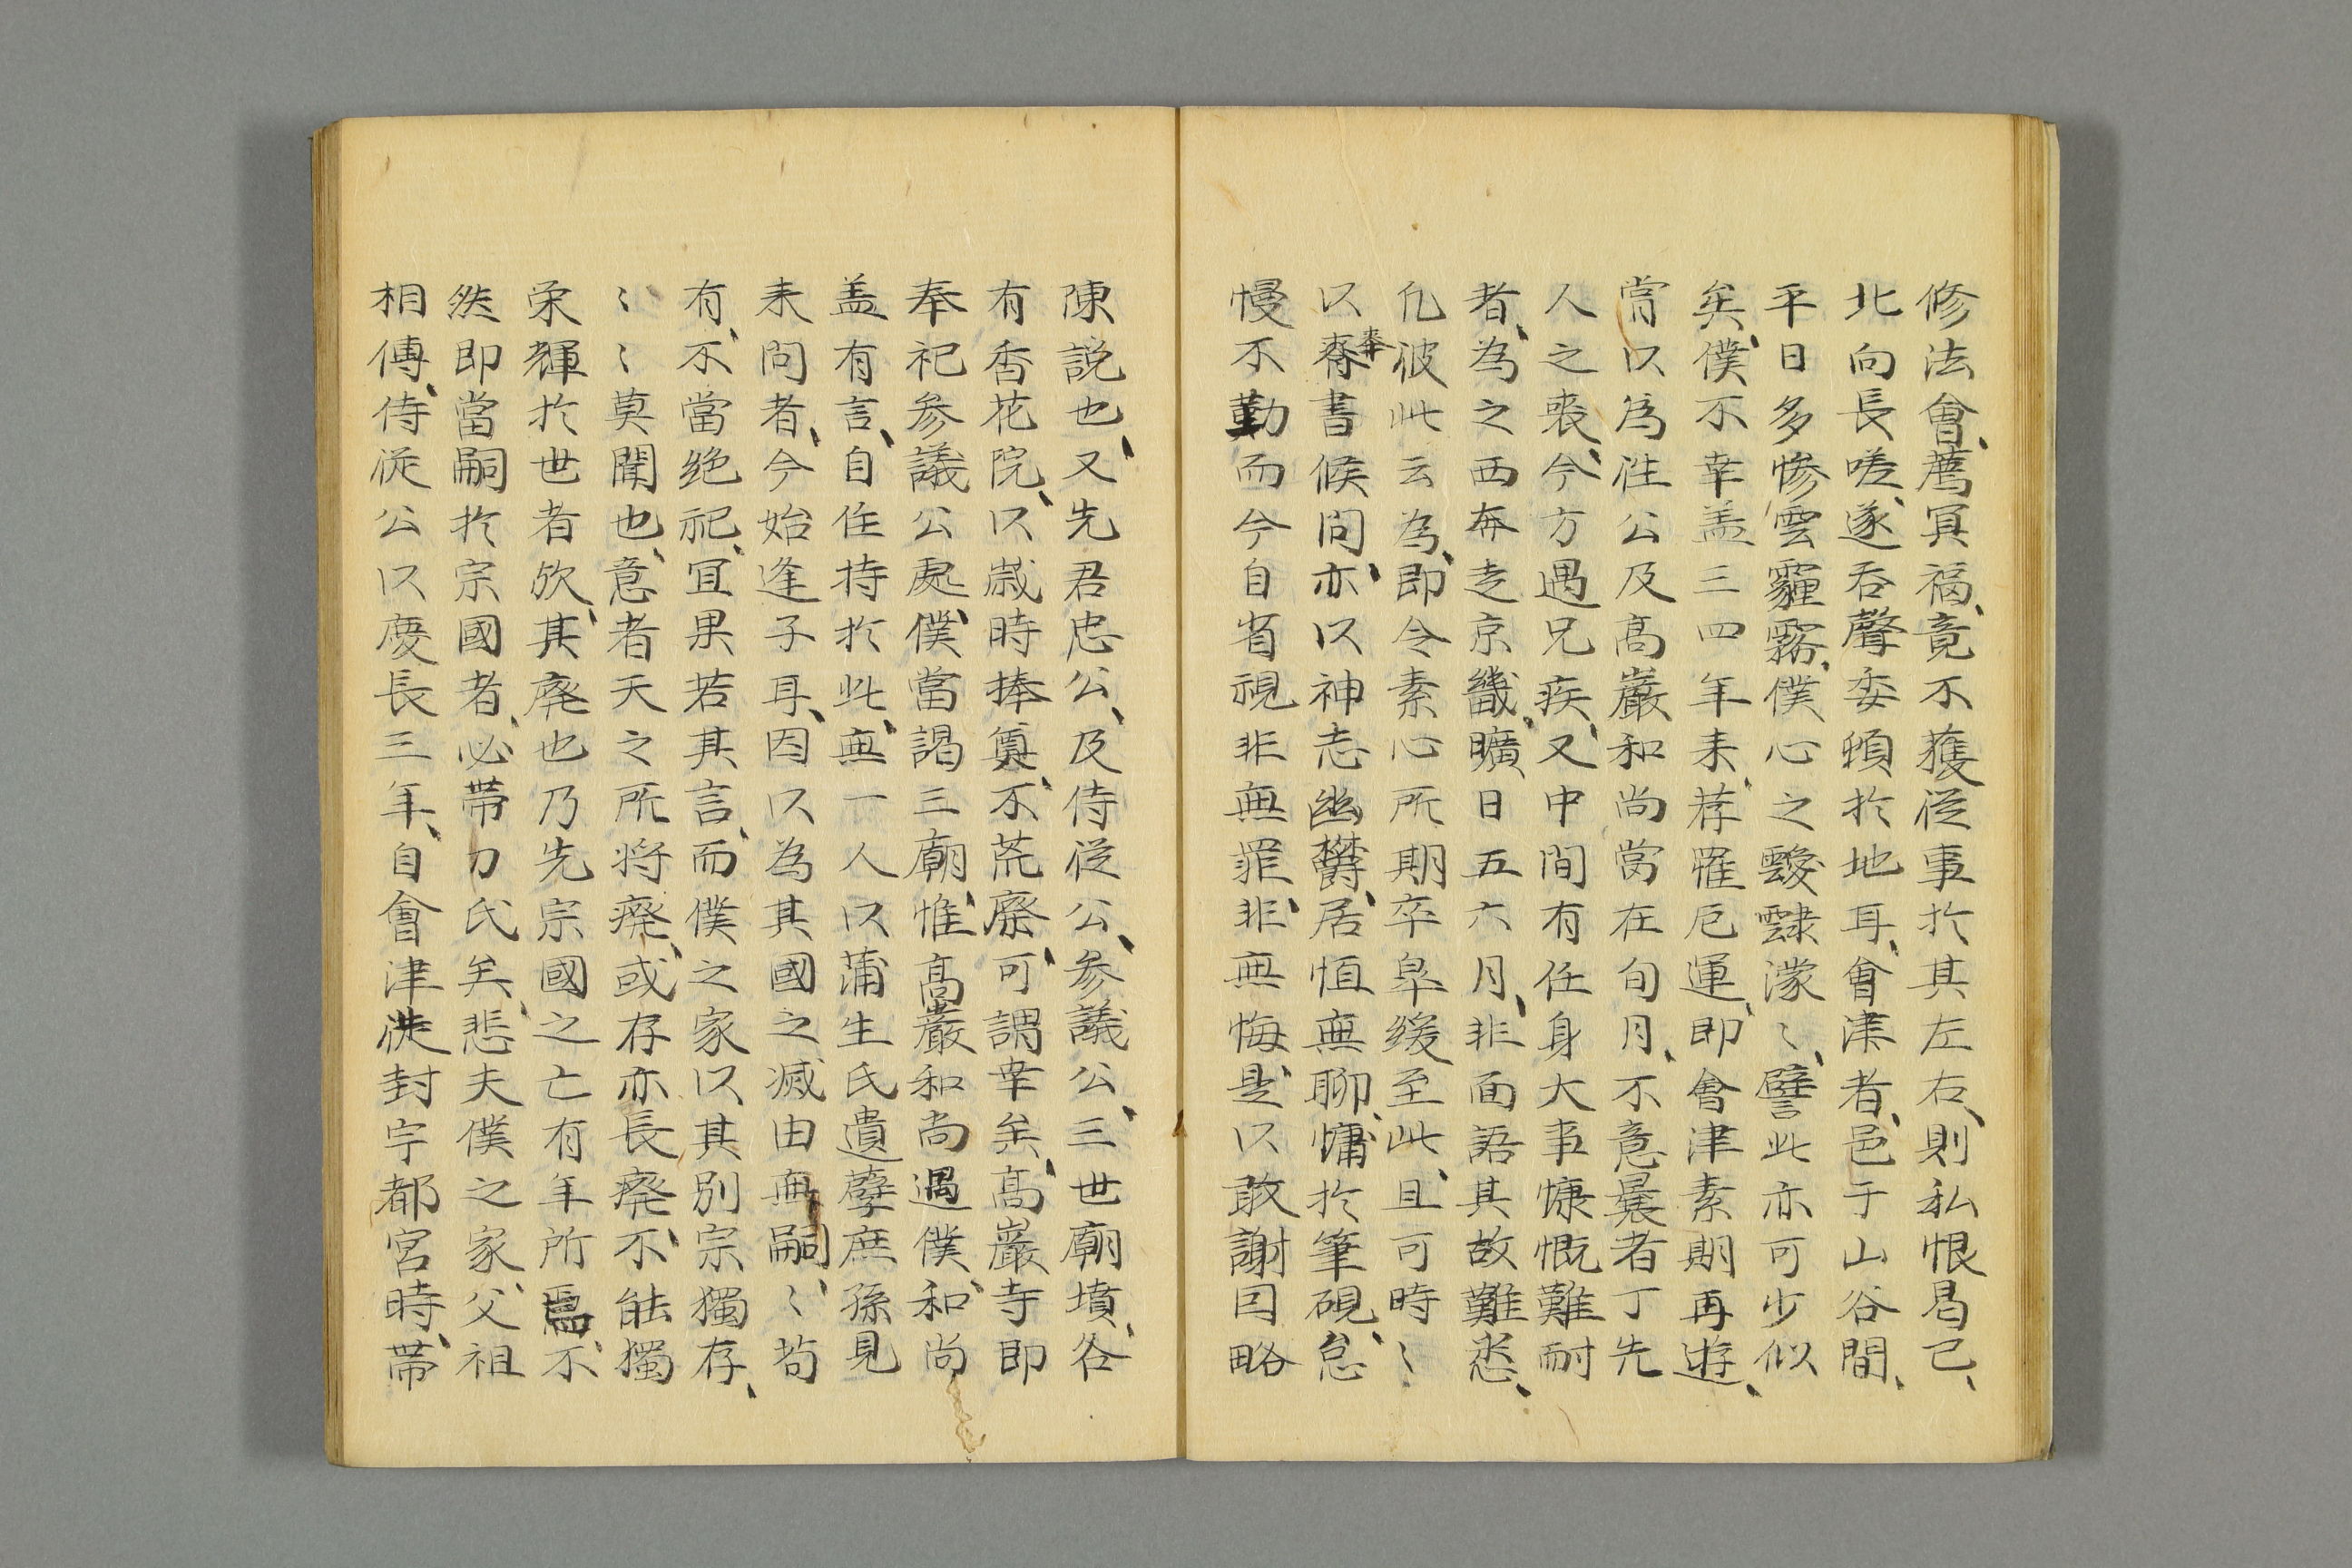 修法會、薦冥福、竟不獲從事於其左右、則私恨曷已、
北向長嗟、遂吞聲委頓於地耳、會津者、邑于山谷間、
平日多慘雲霾霧、僕心之靉靆濛〻、譬此亦可少似
矣、僕不幸盖三四年来、荐罹厄運、即會津素期再遊、
甞以為性公及高巖和尚當在旬月、不意曩者丁先
人之喪、今方遇兄疾、又中間有任身大事慷慨難耐
者、為之西奔走京畿、曠日五六月、非面語其故難悉、
凡彼此云為、即令素心所期卒皐緩至此、且可時〻
以奉書候問、亦以神志幽欝、居恒無聊、慵於筆硯、怠
慢不勤而今自省視非無罪、非無悔、是以敢謝因略
陳説也、又先君忠公、及侍従公、参議公、三世廟墳、各
有香花院、以歳時捧奠、不荒廃、可謂幸矣、高巖寺即
奉祀参議公處、僕當謁三廟、惟高巖和尚遇僕、和尚
盖有言、自住持於此、無一人以蒲生氏遺孽庶孫見
来問者、今始逢子耳、因以為其國之滅由無嗣〻、苟
有、不當絶祀、宜果若其言、而僕之家以其別宗獨存、
〻〻莫聞也、意者天之所将廃、或存亦長廃、不能獨
栄輝於世者欤、其廃也乃先宗國之亡有年所焉、不
然即當嗣於宗國者、必帯刀氏矣、悲夫僕之家、父祖
相傳、侍従公以慶長三年、自會津徙封宇都宮時、帯